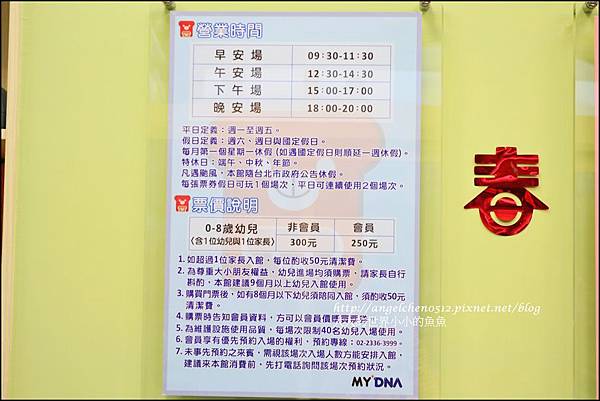 營業時間
早安場 09:30-11:30
午安場 12:30-14:30
下午場 15:00-17:00
晚安場 18:00-20:00
平日定義：週一至週五。
假日定義：週六、週日與國定假日。
每月第一個星期一休假 (如遇國定假日則順延一週休假)。
特休日：端午、中秋、年節。
凡遇颱風，本館隨台北市政府公告休假。
每張票券假日可玩1個場次，平日可連續使用2個場次。
票價說明
0-8歲幼兒 非會員 會員
〈含1位幼兒與1位家長〉 300元 250元
1. 如超過1位家長入館，每位酌收50元清潔費。
2. 為尊重大小朋友權益，幼兒進場均須購票，請家長自行
斟酌，本館建議9個月以上幼兒入館使用。
3. 購買門票後，如有8個月以下幼兒須陪同入館，須酌收50元
清潔費。
4. 購票時告知會員資料，方可以會員價購買票券。
5. 為維護設施使用品質，每場次限制40名幼兒入場使用。
6. 會員享有優先預約入場的權利，預約專線：02-2336-3999。
7. 未事先預約之來賓，需視該場次入場人數方能安排入館，
建議來本館消費前，先打電話詢問該場次預約狀況。
MY DNA
春
http://angelchen0512.pixnet.net/blog
世界小小的魚魚